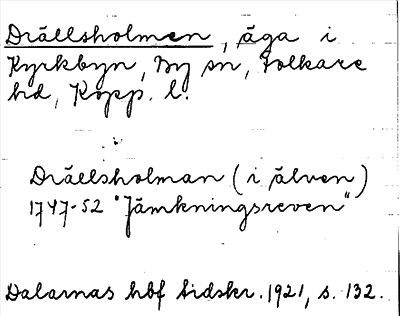 Drällsholmen, äga i
Kyrkbyn, By sn, Folkare
hd, Kopp. l.
Drällsholman (i älven)
1747-52 "Jämkningsreven"
Dalarnas hbf tidskr. 1921, s. 132.